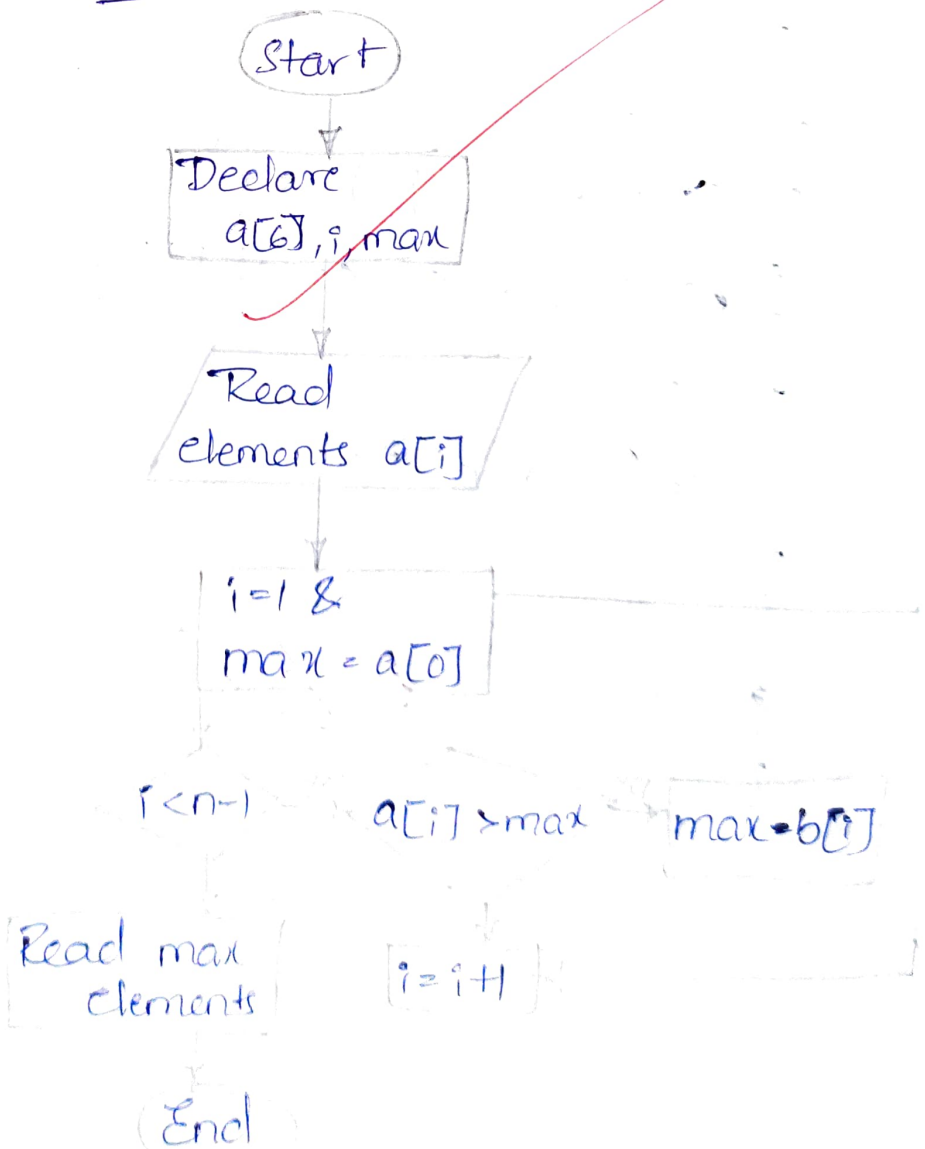 Start
Declare
a[6], i, max
Read
elements a[i]
i=1 &
max = a[0]
i<n-1
a[i]>max
max=b[i]
Read max
elements
i=i+1
End